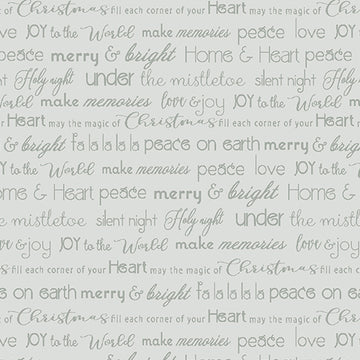 of Christmas fill each corner of your Heart may the magic of Christmas
love JOY to the World make memories peace love JOY
peace merry & bright Home & Heart peace
Holy night under the mistletoe silent night Holy night
World make memories love & joy JOY to the World
your Heart may the magic of Christmas fill each corner of your Heart
& bright fa la la la la peace on earth merry & bright
JOY to the World make memories peace love JOY
Home & Heart peace merry & bright Home &
the mistletoe silent night Holy night under the mistletoe
love & joy JOY to the World make memories love & joy
Christmas fill each corner of your Heart may the magic of Christmas
peace on earth merry & bright fa la la la la peace on
of Christmas fill each corner of your Heart may the magic of Christmas
love JOY to the World make memories peace love JOY